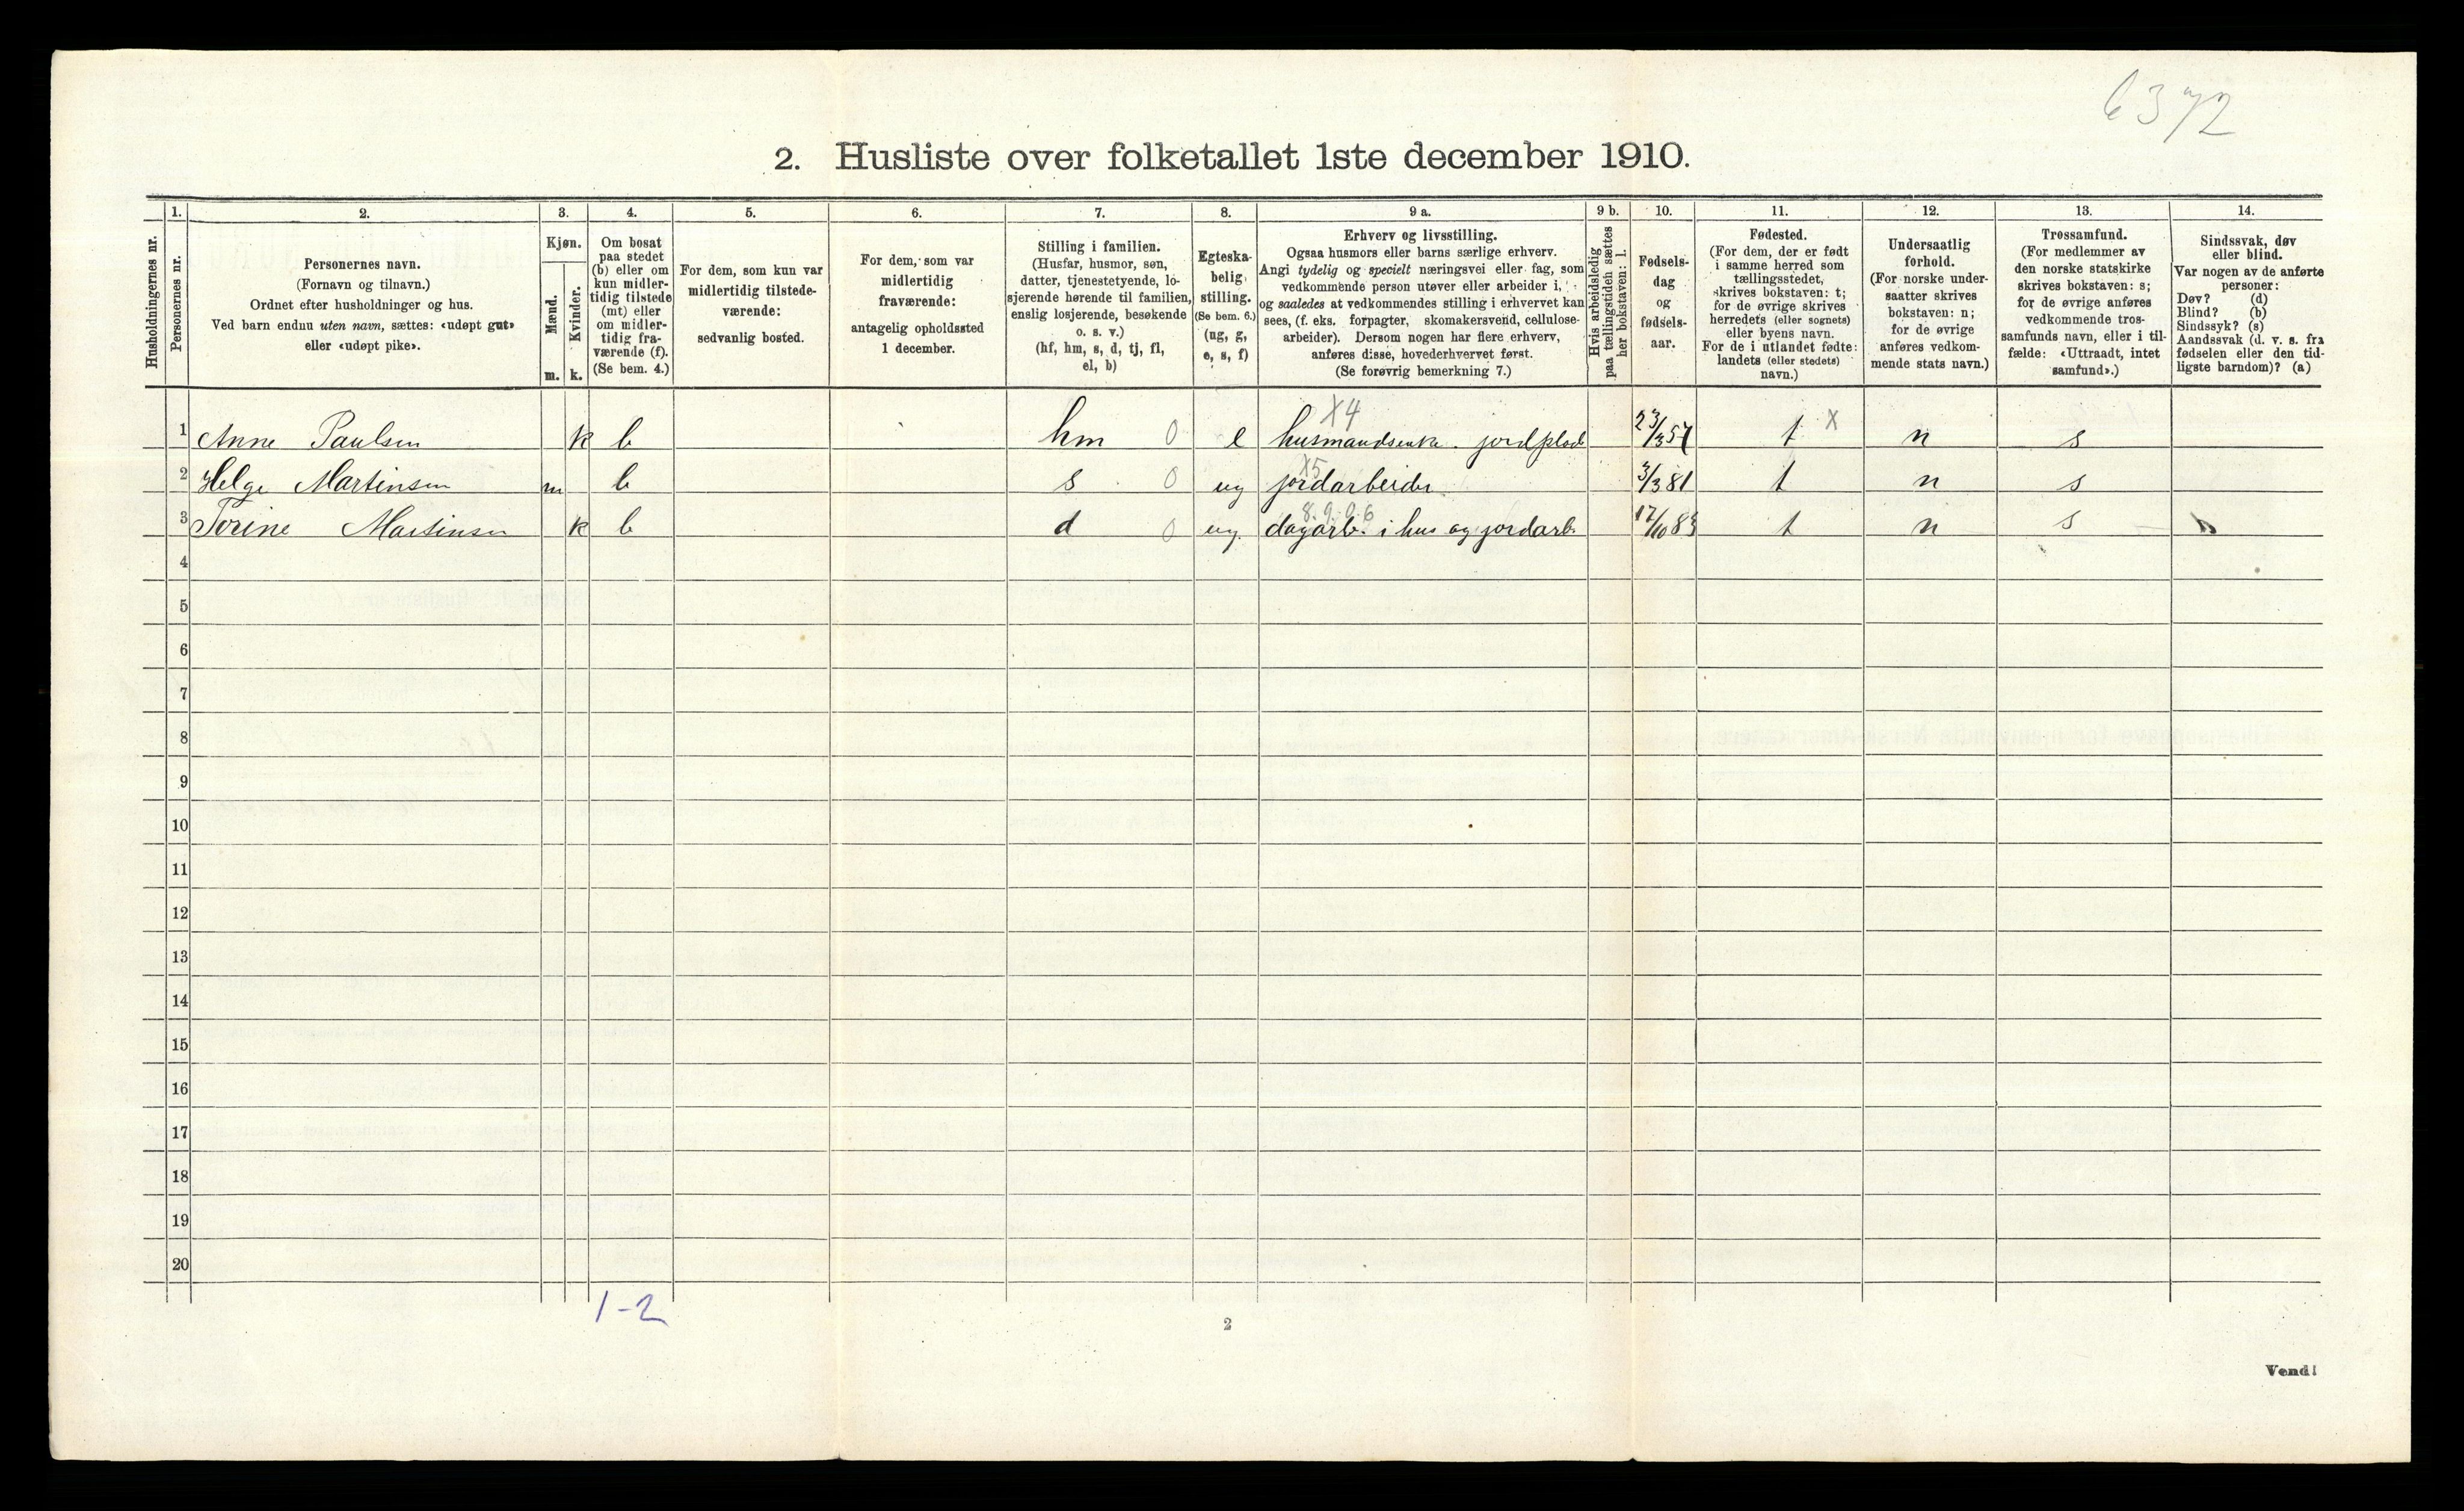 6372
2. Husliste over folketallet 1ste december 1910.
Husholdningernes nr.
1.
Personernes nr.
2.
Personernes navn.
(Fornavn og tilnavn.)
Ordnet efter husholdninger og hus.
Ved barn endnu uten navn, sættes: «udøpt gut»
eller «udøpt pike».
3.
Kjøn.
Mænd.
m.
Kvinder.
k.
4.
Om bosat
paa stedet
(b) eller om
kun midler-
tidig tilstede
(mt) eller
om midler-
tidig fra-
værende (f).
(Se bem. 4.)
5.
For dem, som kun var
midlertidig tilstede-
værende:
sedvanlig bosted.
6.
For dem, som var
midlertidig
fraværende:
antagelig opholdssted
1 december.
7.
Stilling i familien.
(Husfar, husmor, søn,
datter, tjenestetyende, lo-
sjerende hørende til familien,
enslig losjerende, besøkende
o. s. v.)
(hf, hm, s, d, tj, fl,
el, b)
8.
Egteska-
belig
stilling.
(Se bem. 6.)
(ug, g,
e, s, f)
9 a.
Erhverv og livsstilling.
Ogsaa husmors eller barns særlige erhverv.
Angi tydelig og specielt næringsvei eller fag, som
vedkommende person utøver eller arbeider i,
og saaledes at vedkommendes stilling i erhvervet kan
sees, (f. eks. forpagter, skomakersvend, cellulose-
arbeider). Dersom nogen har flere erhverv,
anføres disse, hovederhvervet først.
(Se forøvrig bemerkning 7.)
9 b.
Hvis arbeidsledig
paa tællingstiden sættes
her bokstaven: l.
10.
Fødsels-
dag
og
fødsels-
aar.
11.
Fødested.
(For dem, der er født
i samme herred som
tællingsstedet,
skrives bokstaven: t;
for de øvrige skrives
herredets (eller sognets)
eller byens navn.
For de i utlandet fødte:
landets (eller stedets)
navn.)
12.
Undersaatlig
forhold.
(For norske under-
saatter skrives
bokstaven: n;
for de øvrige
anføres vedkom-
mende stats navn.)
13.
Trossamfund.
(For medlemmer av
den norske statskirke
skrives bokstaven: s;
for de øvrige anføres
vedkommende tros-
samfunds navn, eller i til-
fælde: «Uttraadt, intet
samfund».)
14.
Sindssvak, døv
eller blind.
Var nogen av de anførte
personer:
Døv? (d)
Blind? (b)
Sindssyk? (s)
Aandssvak (d. v. s. fra
fødselen eller den tid-
ligste barndom)? (a)
X4
1 Anne Paulsen k b hm 0 e husmandsenke. jordplads 23/3 57 t X n s
X5
2 Helge Martinsen m b s 0 ug jordarbeider 3/3 81 t n s
8.9.0.6
3 Torine Martinsen k b d 0 ug. dagarb. i hus og jordarb. 17/10 83 t n s
4
5
6
7
8
9
10
11
12
13
14
15
16
17
18
19
20
1-2
2
Vend!